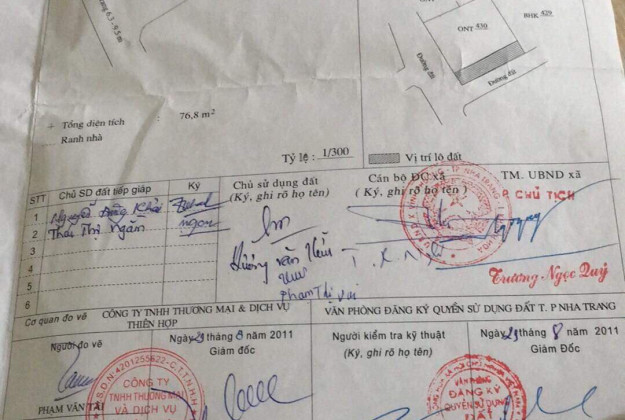 trang 6.3-9.5m
ONT 430
BHK 429
Đường đất
Đường đất
+ Tổng diện tích : 76,8 m²
Ranh nhà
Tỷ lệ : 1/300
Vị trí lô đất
STT Chủ SD đất tiếp giáp Ký
Chủ sử dụng đất
(Ký, ghi rõ họ tên)
Cán bộ ĐC xã
(Ký, ghi rõ họ tên)
TM. UBND xã
P. CHỦ TỊCH
1 Nguyễn
2 Thái Thị Ngân ngan
3
4
5
6
Hường Văn
Phạm Thị
Trương Ngọc Quý
T.P NHA TRANG
Cơ quan đo vẽ
CÔNG TY TNHH THƯƠNG MẠI & DỊCH VỤ
THIÊN HỢP
VĂN PHÒNG ĐĂNG KÝ QUYỀN SỬ DỤNG ĐẤT T. P NHA TRANG
Người đo vẽ
Ngày 21 tháng 8 năm 2011
Giám Đốc
Người kiểm tra kỹ thuật
(Ký, ghi rõ họ tên)
Ngày tháng 8 năm 2011
Giám Đốc
PHẠM VĂN TÀI
S.D.N:4201255622-C.T.T.N.H.H
CÔNG TY
TNHH THƯƠNG MẠI
VÀ DỊCH VỤ
VĂN PHÒNG
ĐĂNG KÝ
QUYỀN SỬ DỤNG
ĐẤT